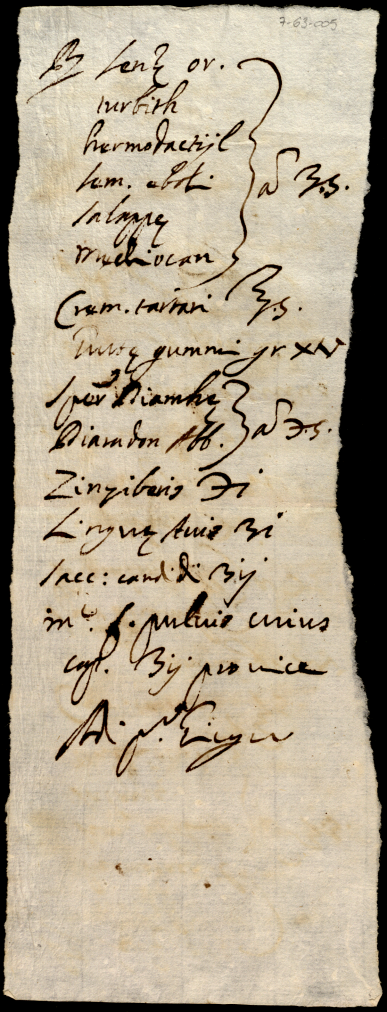 7-63-005
℞ senę or.
turbith
hermodactijl
sem. eboli
Jalappę
mechiocan } a̅ ʒ.s.
Crem. tartari ʒ.s.
Guttę gummi gr. XIV
Sper Diambrę
Diarrdon Abb. } a̅ ℈.s.
Zinziberis ℈i
Linguę Avis ʒi
Sacc: candidi ʒij
m. f. pulvis cuius
cap. ʒij pro vice